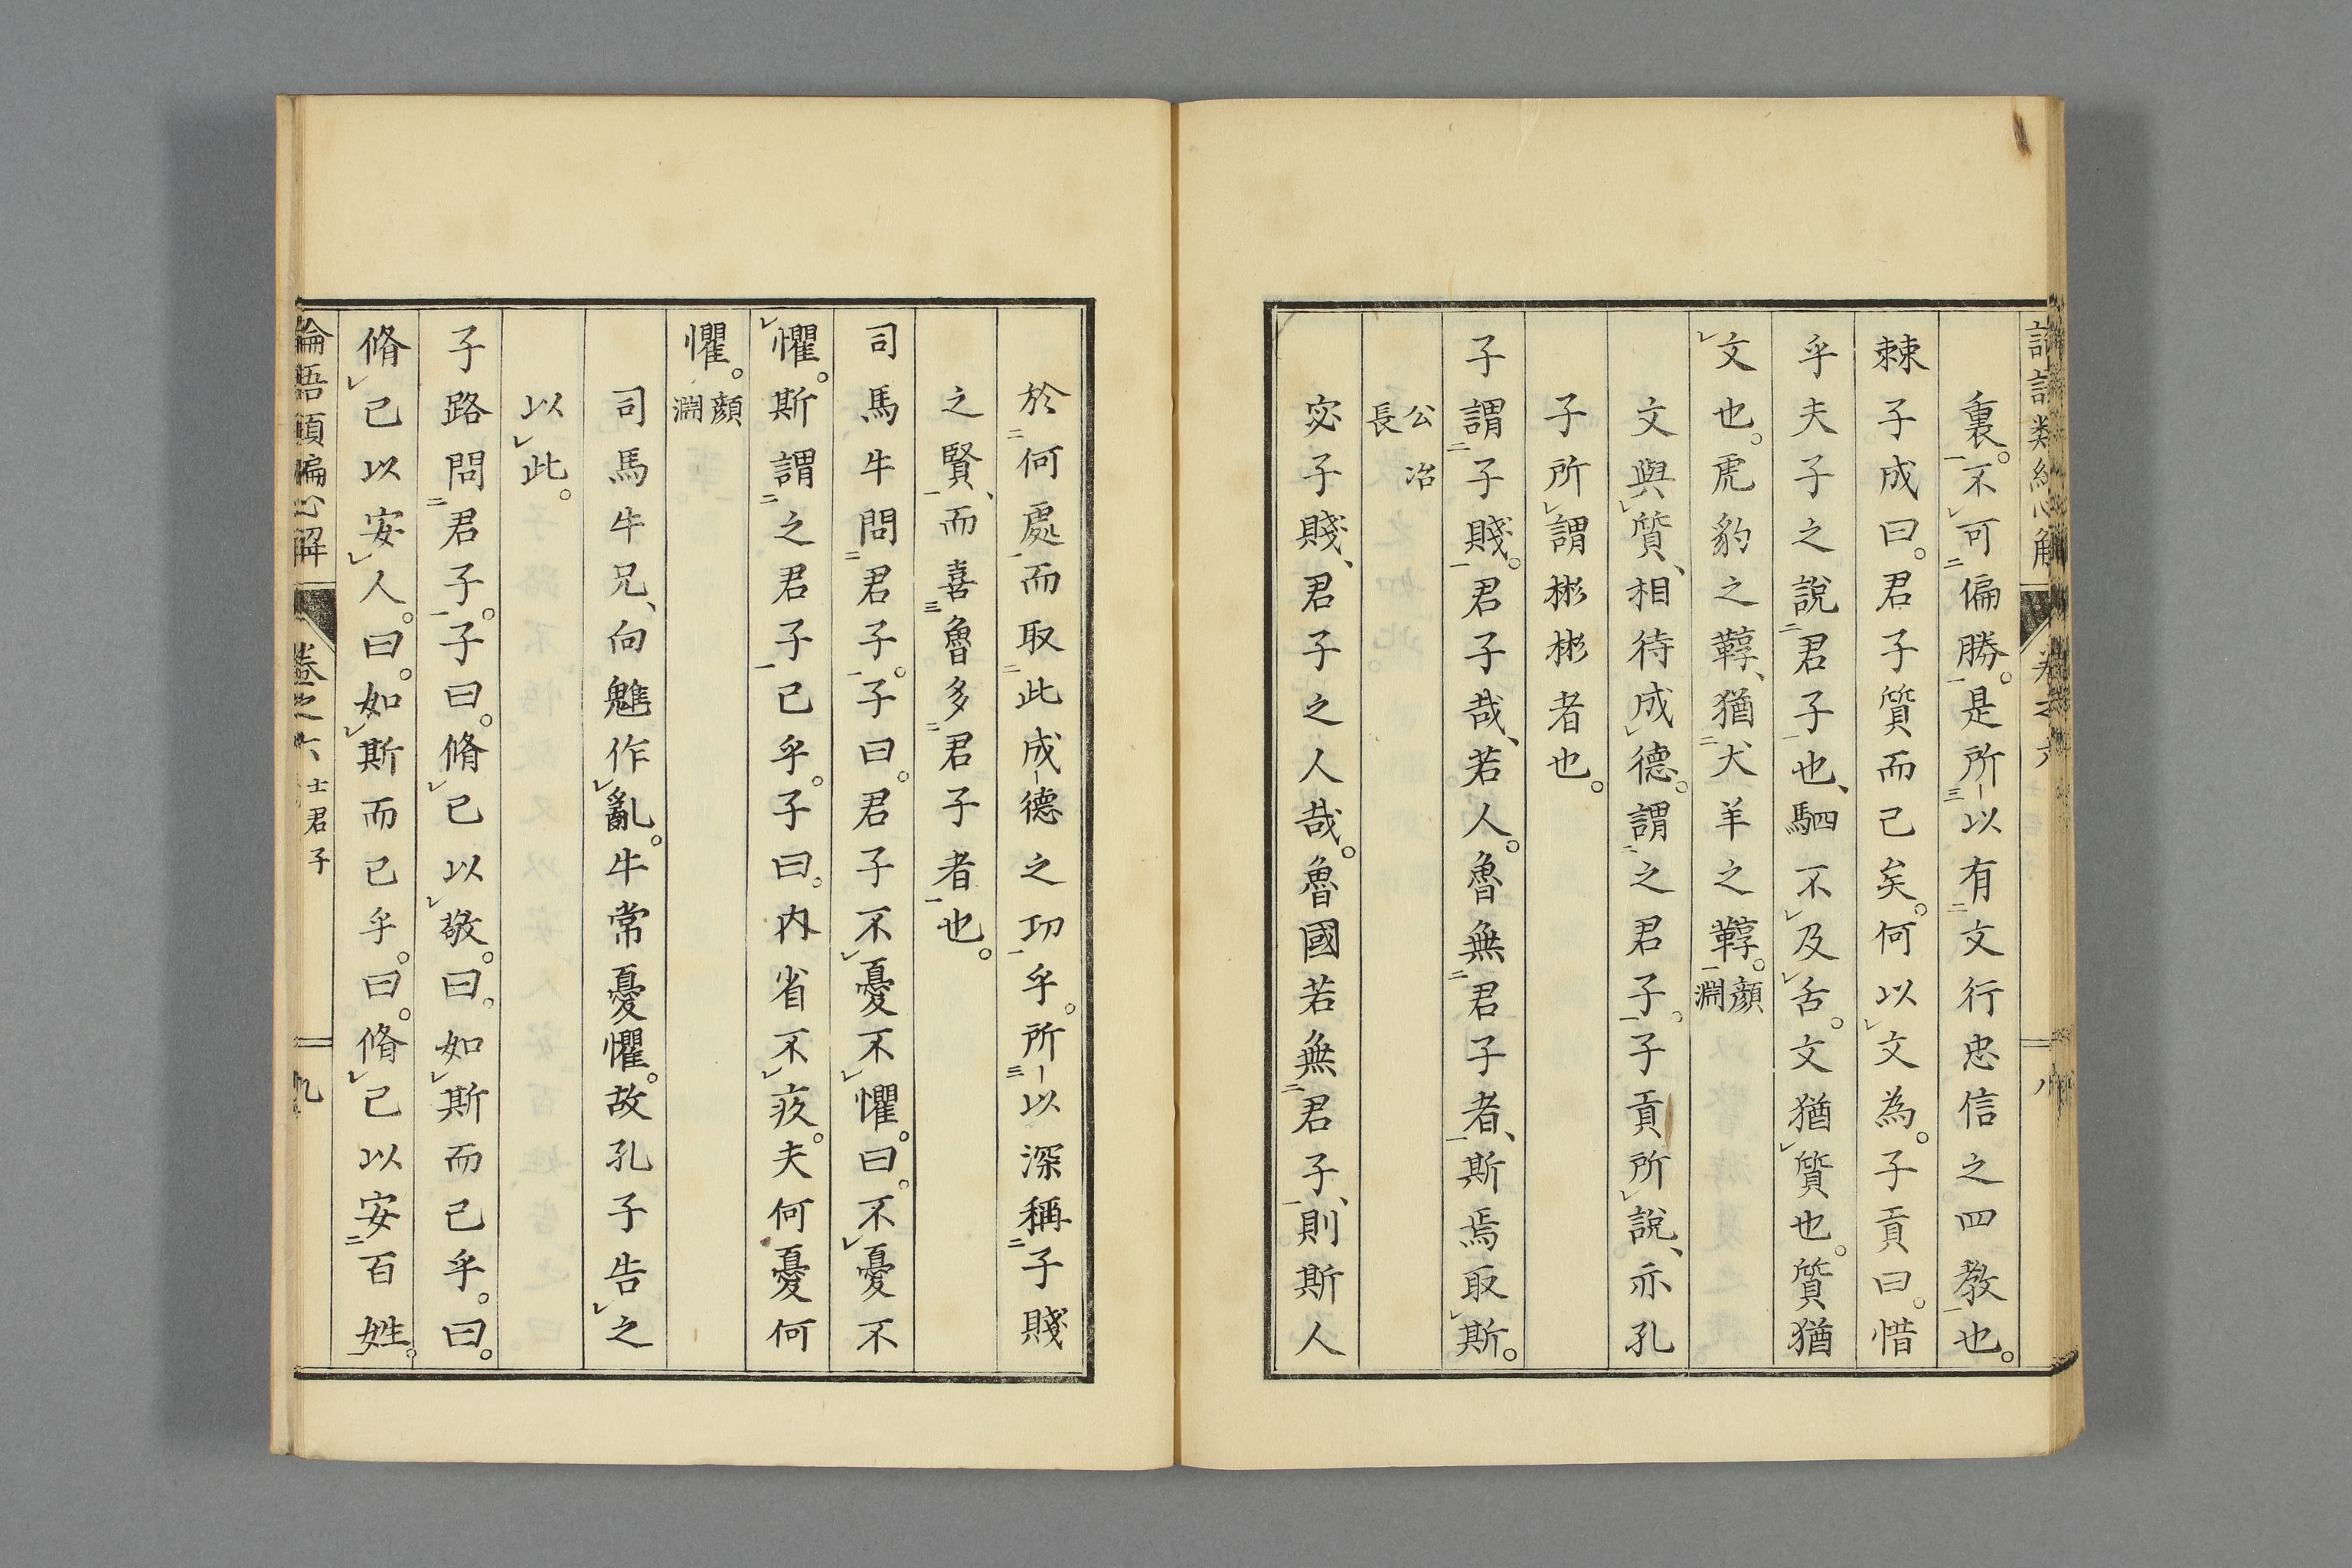 裏。不可偏勝。是所以有文行忠信之四教也。
棘子成曰。君子質而已矣。何以文為。子貢曰。惜
乎夫子之說君子也、駟不及舌。文猶質也。質猶
文也。虎豹之鞟、猶犬羊之鞟。顏淵
文與質、相待成德。謂之君子。子貢所說、亦孔
子所謂彬彬者也。
子謂子賤。君子哉、若人。魯無君子者、斯焉取斯。
公冶長
宓子賤、君子之人哉。魯國若無君子、則斯人
於何處而取此成德之功乎。所以深稱子賤
之賢、而喜魯多君子者也。
司馬牛問君子。子曰。君子不憂不懼。曰。不憂不
懼。斯謂之君子已乎。子曰。內省不疚。夫何憂何
懼。顏淵
司馬牛兄、向魋作亂。牛常憂懼。故孔子告之
以此。
子路問君子。子曰。脩己以敬。曰。如斯而已乎。曰。
脩己以安人。曰。如斯而已乎。曰。脩己以安百姓。
論語類編心解 卷之六 士君子 九